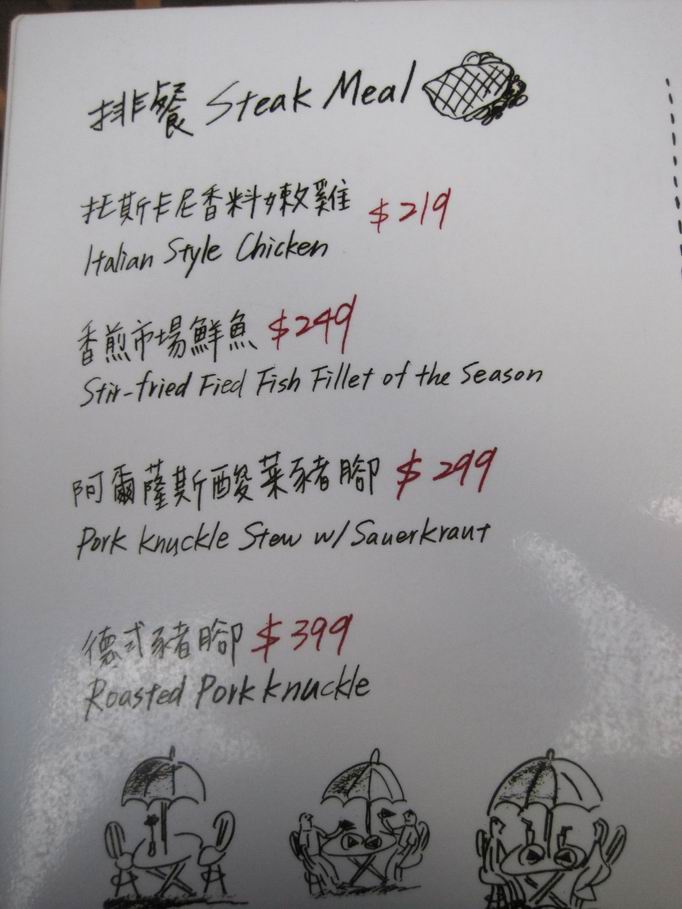 排餐 Steak Meal
托斯卡尼香料嫩雞 $219
Italian Style Chicken
香煎市場鮮魚 $249
Stir-fried Fied Fish Fillet of the Season
阿爾薩斯酸菜豬腳 $299
Pork Knuckle Stew w/ Sauerkraut
德式豬腳 $399
Roasted Pork Knuckle